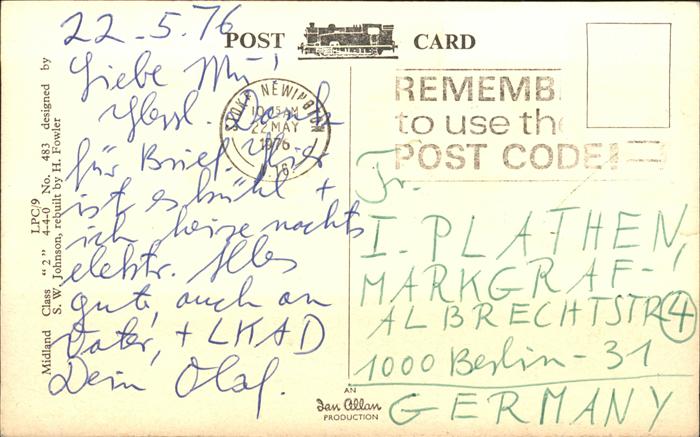 22.5.76
POST CARD
Liebe Mü!
Herzl. Dank
für Brief. Hier
ist es kühl +
ich heize nachts
elektr. Alles
gute, auch an
Vater, + LKAD
Dein Olaf.
LPC/9
Midland Class "2" 4-4-0 No. 483 designed by
S. W. Johnson, rebuilt by H. Fowler
STOKE NEWINGTON
22 MAY
1976
REMEMB
to use the
POST CODE!
Fr.
I. PLATHEN,
MARKGRAF-
ALBRECHTSTR 4
1000 Berlin-31
GERMANY
AN
Ian Allan
PRODUCTION